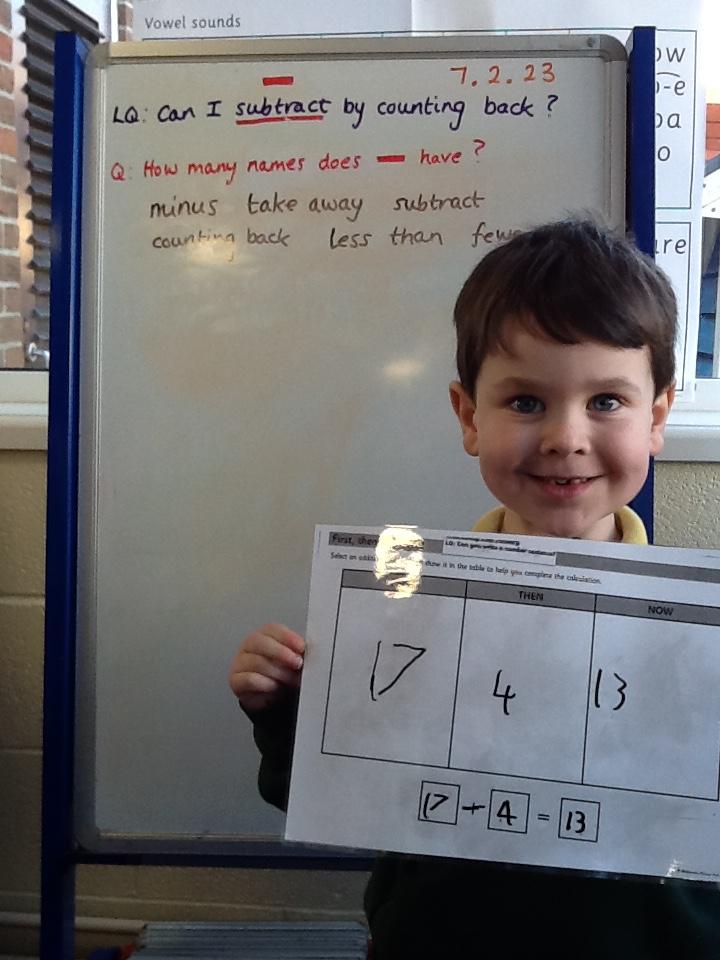 Vowel sounds
ow
o-e
oa
o
ure
7.2.23
LQ: Can I subtract by counting back ?
Q: How many names does — have ?
minus take away subtract
counting back less than
First, then
LQ: Can you write a number sentence?
Select an show it in the table to help you complete the calculation.
THEN NOW
17 4 13
17 + 4 = 13